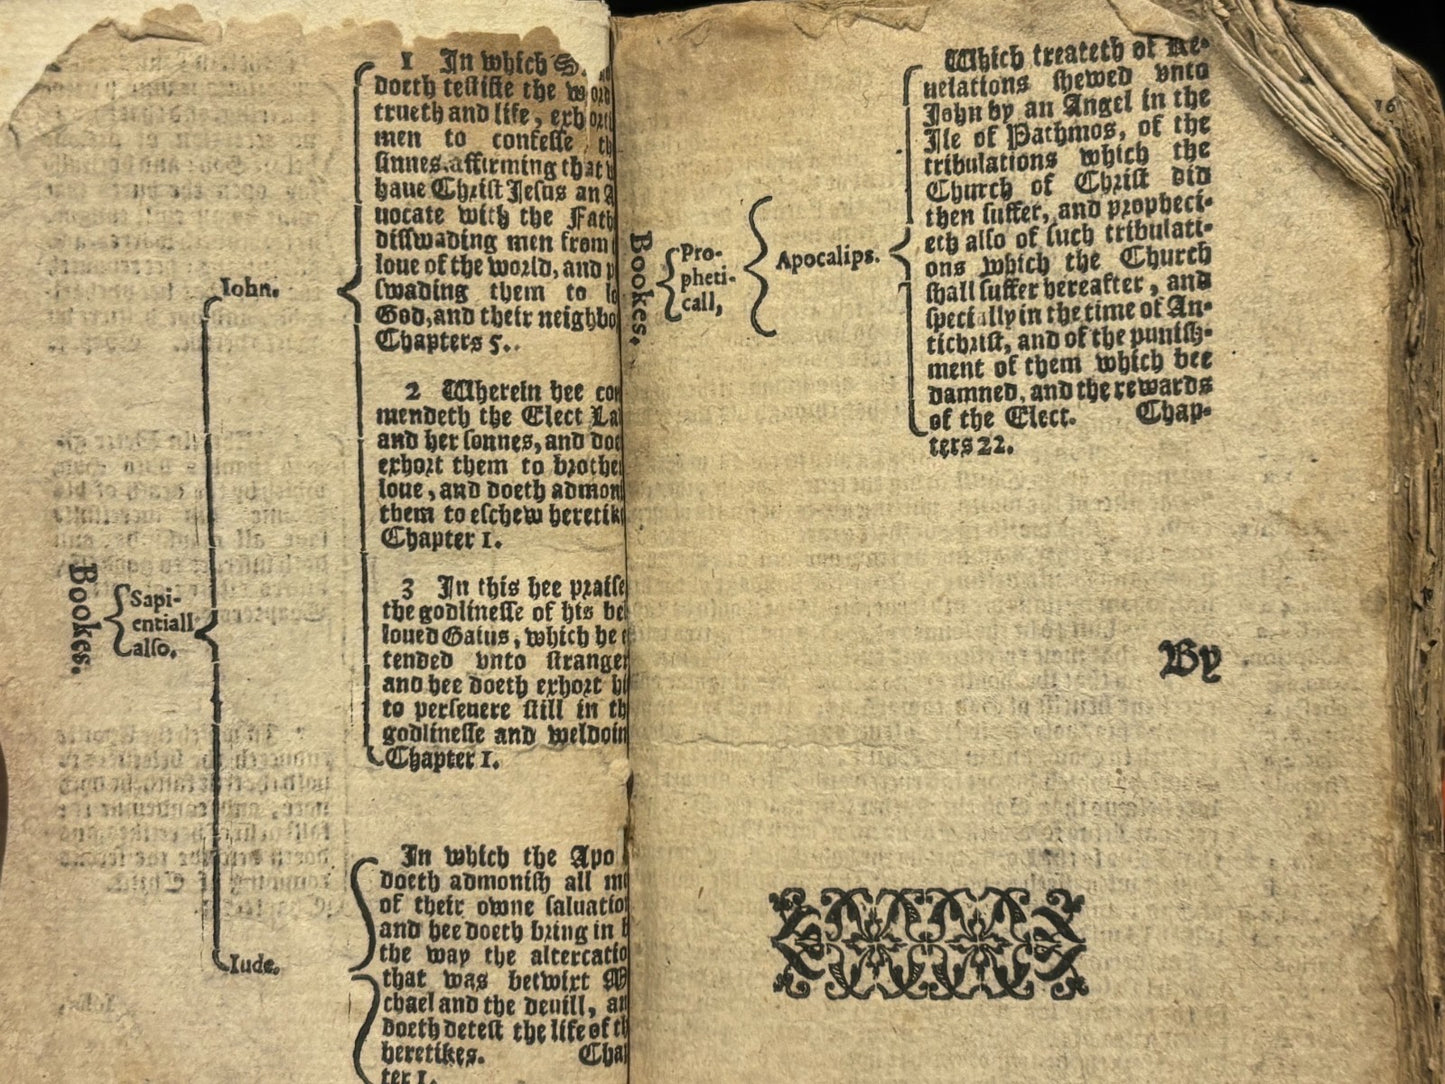 1 In which S.
doeth testifie the word
trueth and life, exhorti
men to confesse th
sinnes, affirming that
haue Christ Iesus an A
uocate with the Fath
disswading men from
loue of the world, and p
swading them to lo
God, and their neighbo
Chapters 5.
Iohn.
2 Wherein hee com
mendeth the Elect La
and her sonnes, and doe
exhort them to brothe
loue, and doeth admon
them to eschew heretik
Chapter 1.
3 In this hee praise
the godlinesse of his be
loued Gaius, which he
tended vnto stranger
and hee doeth exhort hi
to perseuere still in th
godlinesse and weldoin
Chapter 1.
Bookes.
Sapi-
entiall
also.
In which the Apo
doeth admonish all me
of their owne saluatio
and hee doeth bring in
the way the altercatio
that was betwixt M
chael and the deuill, an
doeth detest the life of th
heretikes. Chap
ter 1.
Iude.
16
Which treateth of Re-
uelations shewed vnto
Iohn by an Angel in the
Ile of Pathmos, of the
tribulations which the
Church of Christ did
then suffer, and propheci-
eth also of such tribulati-
ons which the Church
shall suffer hereafter, and
specially in the time of An-
tichrist, and of the punish-
ment of them which bee
damned, and the rewards
of the Elect. Chap-
ters 22.
Bookes.
Pro-
pheti-
call,
Apocalips.
By